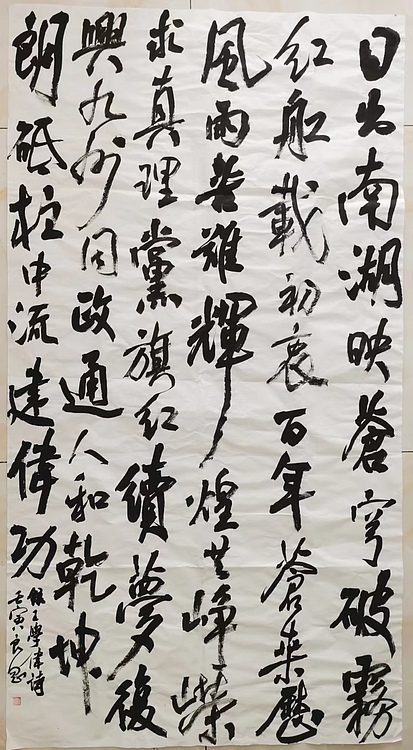 日出南湖映蒼穹破霧
红船載初衷百年蒼桑歷
風雨苦難輝煌共峥嵘
求真理黨旗红續夢復
興九州同政通人和乾坤
朗砥柱中流建偉功
錄王學津詩
壬寅